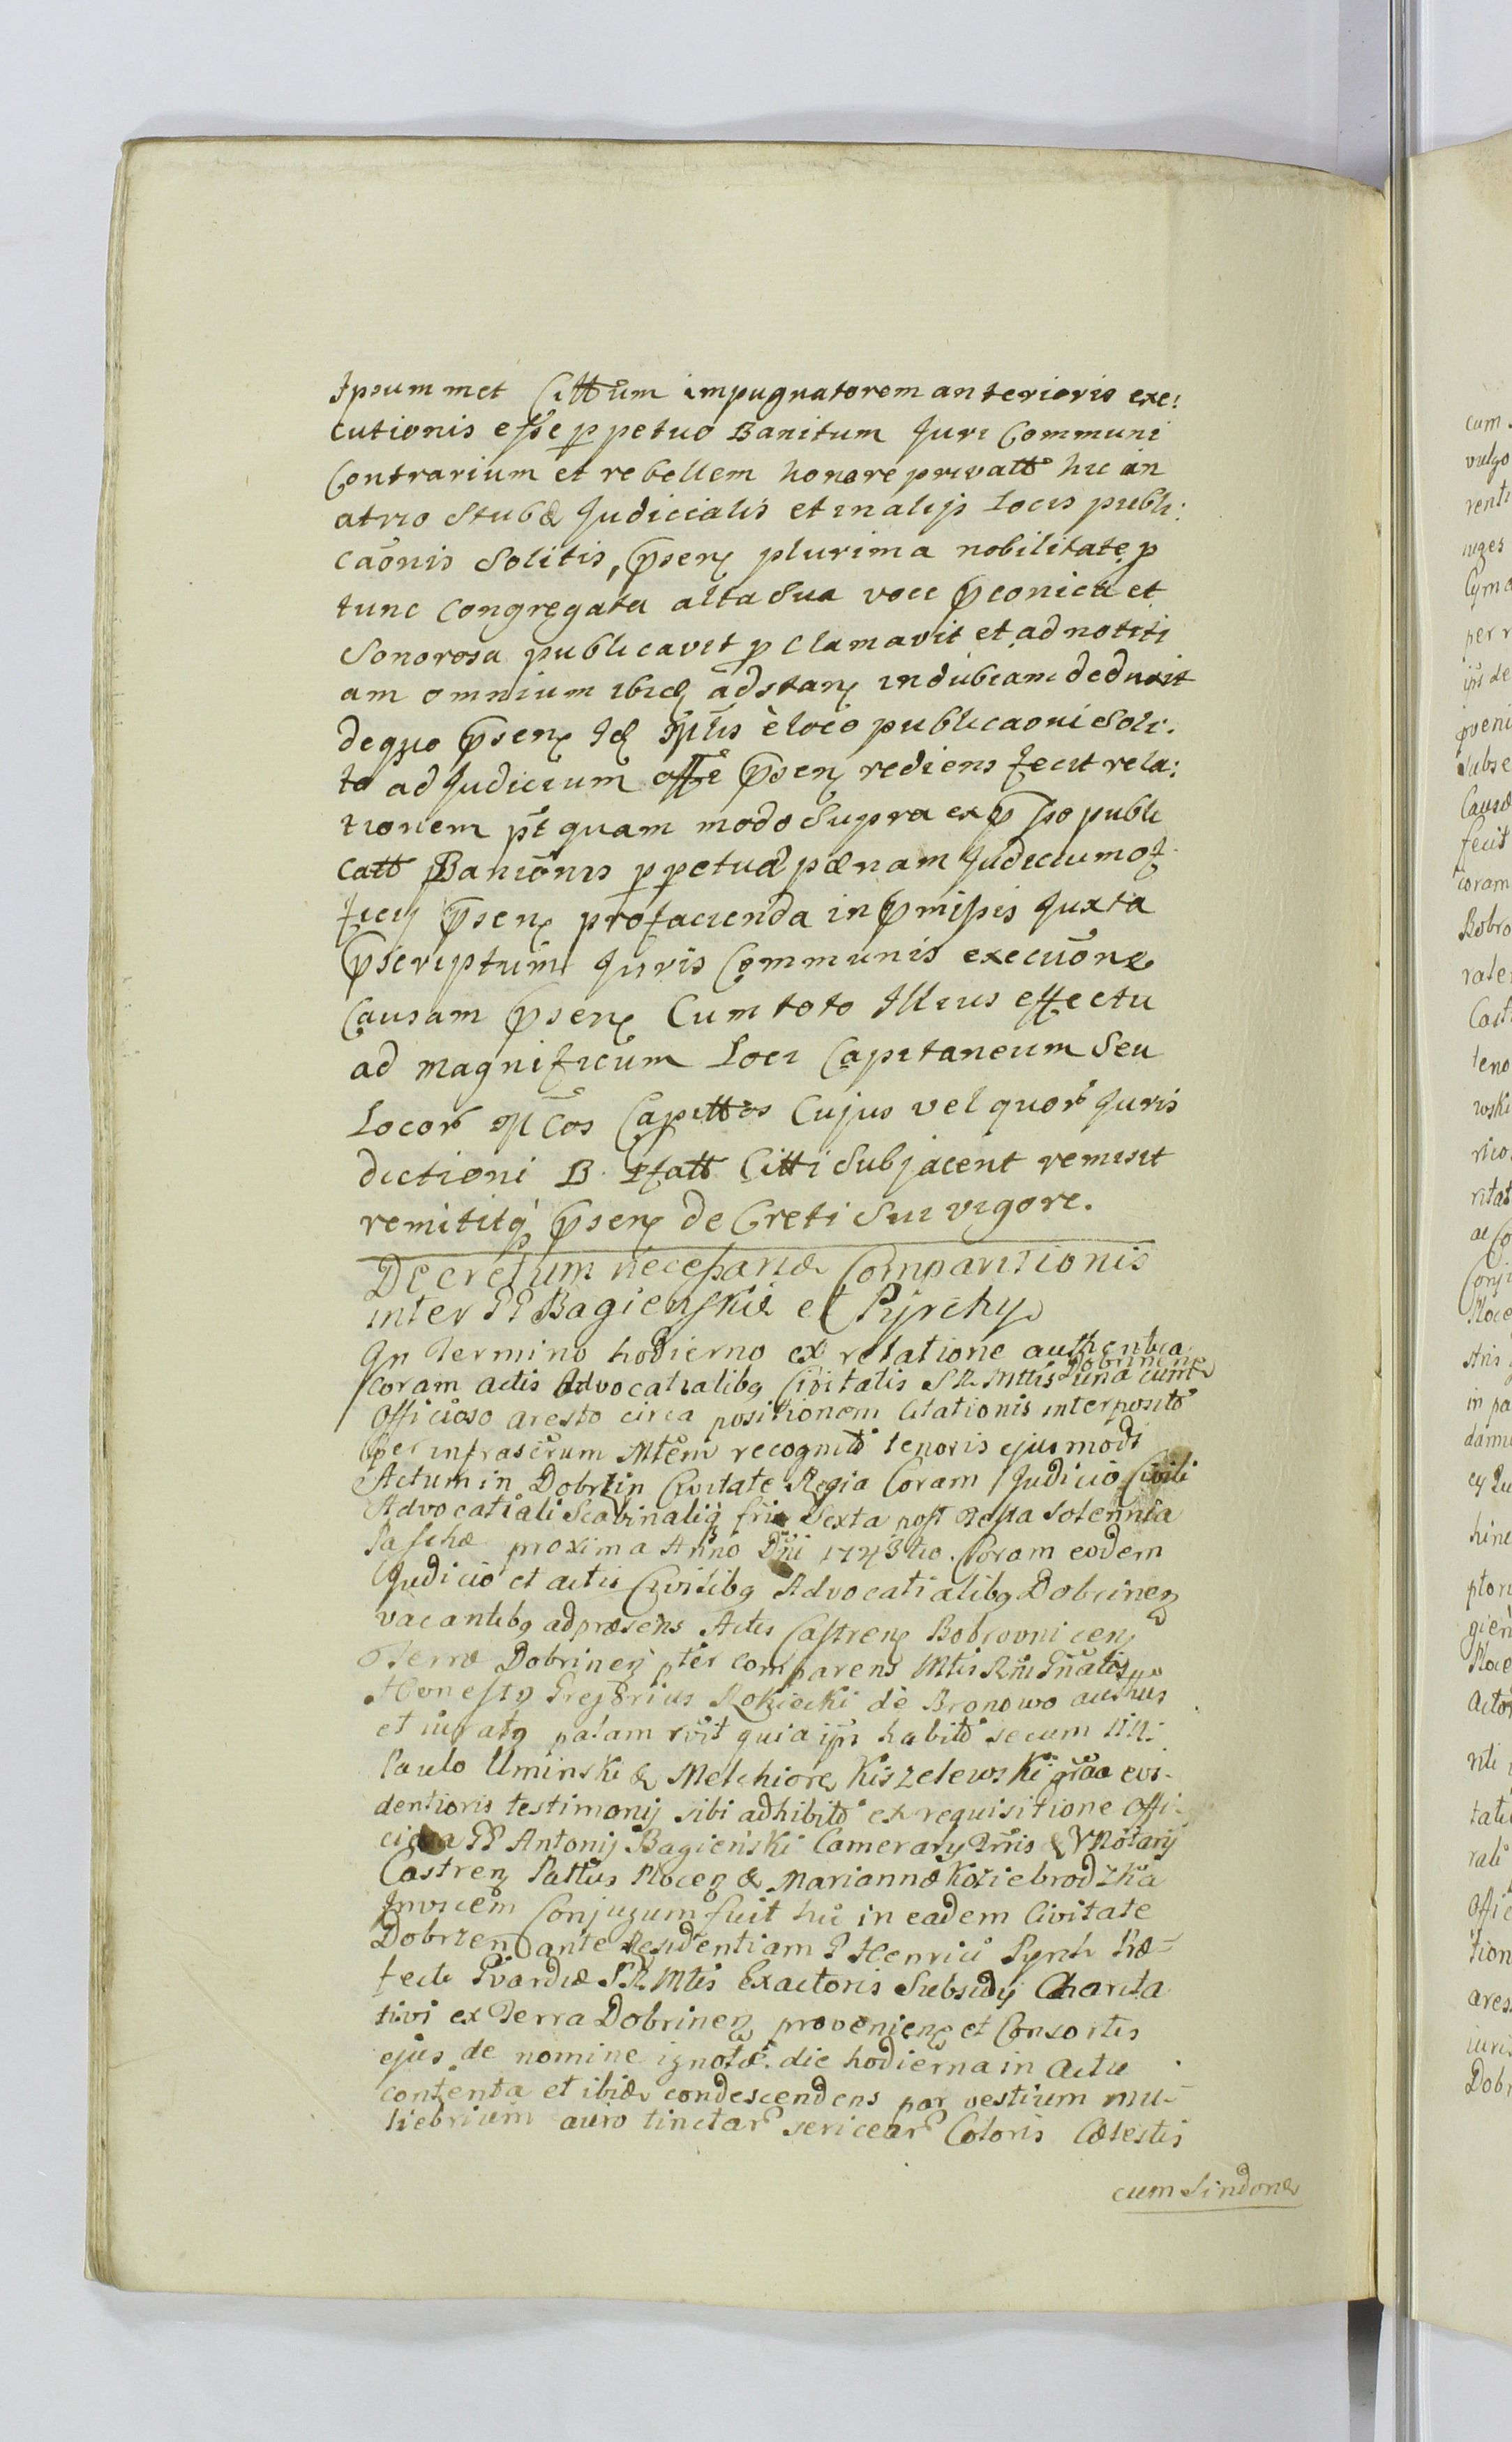 Ipsummet Cittum impugnatorem anterioris exe:
cutionis esse ppetuo Banitum Juri Communi
Contrarium et rebellem honore privatt hic in
atrio Stubæ Judicialis et in alijs locis publi:
caōnis Solitis, psen plurima nobilitate p
tunc Congregata alta Sua voce pconica et
Sonorosa publicavit pclamavit et ad notiti
am omnium ibid adstan indubiam deduxit
de quo psen Id Mtlis è loco publicaōni Soli:
to ad Judicium offi psen rediens fecit rela:
tionem pt quam modo Supra expsso publi
catt Baniōnis ppetuæ pænam Judicium of
ficij psen pro facienda in pmissis Juxta
pscriptum Juris Communis execuōne
Causam psen Cum toto Illius effectu
ad Magnificum Loci Capitaneum Seu
Locor Mcos Capittos Cujus vel quor Juris
dictioni B. Pfatt Citti Subjacent remisit
remititq psen deCreti Sui vigore.
Decretum necessariæ Comparitionis
inter PP Bagienskie et Pyrchy
In Termino hodierno ex relatione authentica
coram actis Advocatialibq Civitatis SR Mttis Dobrinen una cum
Officioso aresto circa positionem Citationis interposito
per infrascrum Mtem recognito tenoris ejusmodi
Actum in Dobrzin Civitate Regia Coram Judicio Civili
Advocatiali Scabinaliq fria Sexta post Festa Solennia
Paschæ proxima Anno Dni 1743tio. Coram eodem
Judicio et actis Civilibq Advocatialibq Dobrinen
vacantibq ad præsens Actis Castren Bobrovnicen
Terræ Dobrinen pter comparens Mtis Rni Gnalis
Honestq Gregorius Rokicki de Bronowo authus
et iuratq palam rvit quia ipse habito secum NN.
Paulo Uminski & Melchiore Kiszelewski grãa evi-
dentioris testimonij sibi adhibito ex requisitione Offi-
ciosa PP Antonij Bagieński Camerary Trris & VNotarij
Castren Pattus Plocen & Mariannæ Koziebrodzka
Invicem Conjugum fuit hic in eadem Civitate
Dobrzen ante Residentiam P Henrici Pyrch Præ-
fecti Gvardiæ SR Mtis Exactoris Subsidij Charita
tivi ex Terra Dobrinen provenien et Consortis
ejus de nomine ignotæ. die hodierna in actu
contenta et ibide condescendens par vestium mu-
liebrium auro tinctar sericear Coloris Cælestis
cum Sindone